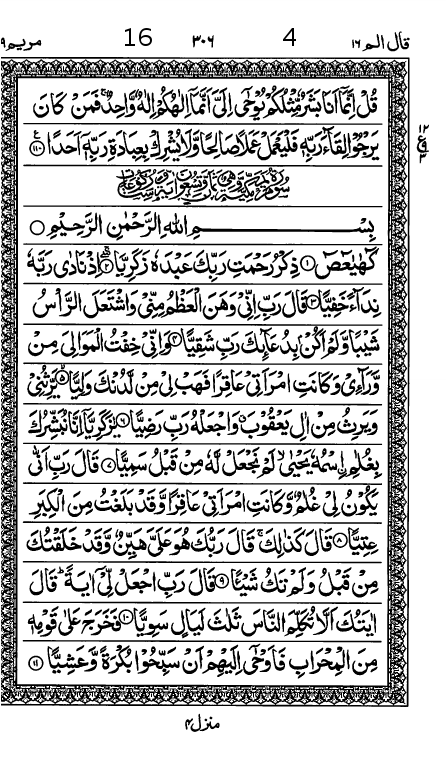 قال الم ١٦ 4 ٣٠٦ 16 مريم ١٩
قُلْ اِنَّمَاۤ اَنَا بَشَرٌ مِّثْلُكُمْ يُوْحٰۤى اِلَىَّ اَنَّمَاۤ اِلٰهُكُمْ اِلٰهٌ وَّاحِدٌ ۚ فَمَنْ كَانَ
يَرْجُوْا لِقَآءَ رَبِّهٖ فَلْيَعْمَلْ عَمَلًا صَالِحًا وَّلَا يُشْرِكْ بِعِبَادَةِ رَبِّهٖۤ اَحَدًا ﴿١١٠﴾
١٢
ع
٣
بِسْمِ اللّٰهِ الرَّحْمٰنِ الرَّحِيْمِ
كٓهٰيٰعٓصٓ ﴿١﴾ ذِكْرُ رَحْمَتِ رَبِّكَ عَبْدَهٗ زَكَرِيَّا ﴿٢﴾ اِذْ نَادٰى رَبَّهٗ
نِدَآءً خَفِيًّا ﴿٣﴾ قَالَ رَبِّ اِنِّىْ وَهَنَ الْعَظْمُ مِنِّىْ وَاشْتَعَلَ الرَّاْسُ
شَيْبًا وَّلَمْ اَكُنْۢ بِدُعَآئِكَ رَبِّ شَقِيًّا ﴿٤﴾ وَاِنِّىْ خِفْتُ الْمَوَالِىَ مِنْ
وَّرَآءِىْ وَكَانَتِ امْرَاَتِىْ عَاقِرًا فَهَبْ لِىْ مِنْ لَّدُنْكَ وَلِيًّا ﴿٥﴾ يَّرِثُنِىْ
وَيَرِثُ مِنْ اٰلِ يَعْقُوْبَ ۖ وَاجْعَلْهُ رَبِّ رَضِيًّا ﴿٦﴾ يٰزَكَرِيَّاۤ اِنَّا نُبَشِّرُكَ
بِغُلٰمِ ِۨاسْمُهٗ يَحْيٰى ۙ لَمْ نَجْعَلْ لَّهٗ مِنْ قَبْلُ سَمِيًّا ﴿٧﴾ قَالَ رَبِّ اَنّٰى
يَكُوْنُ لِىْ غُلٰمٌ وَّكَانَتِ امْرَاَتِىْ عَاقِرًا وَّقَدْ بَلَغْتُ مِنَ الْكِبَرِ
عِتِيًّا ﴿٨﴾ قَالَ كَذٰلِكَ ۚ قَالَ رَبُّكَ هُوَ عَلَىَّ هَيِّنٌ وَّقَدْ خَلَقْتُكَ
مِنْ قَبْلُ وَلَمْ تَكُ شَيْـًٔا ﴿٩﴾ قَالَ رَبِّ اجْعَلْ لِّىْۤ اٰيَةً ؕ قَالَ
اٰيَتُكَ اَلَّا تُكَلِّمَ النَّاسَ ثَلٰثَ لَيَالٍ سَوِيًّا ﴿١٠﴾ فَخَرَجَ عَلٰى قَوْمِهٖ
مِنَ الْمِحْرَابِ فَاَوْحٰۤى اِلَيْهِمْ اَنْ سَبِّحُوْا بُكْرَةً وَّعَشِيًّا ﴿١١﴾
منزل ٤